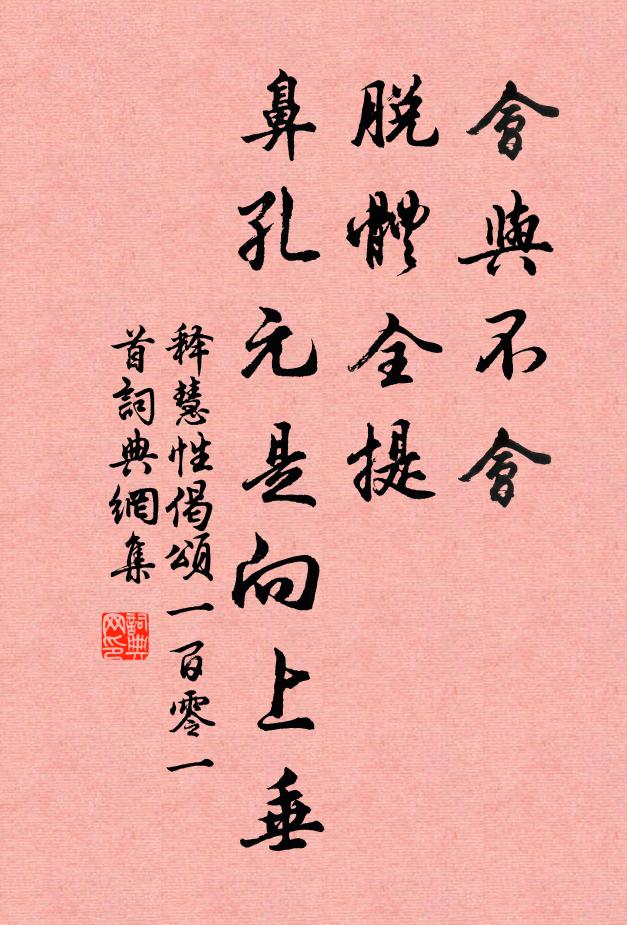 會與不會
脫體全提
鼻孔元是向上垂
释慧性偈頌一百零一
首詞典網集
詞典
网印